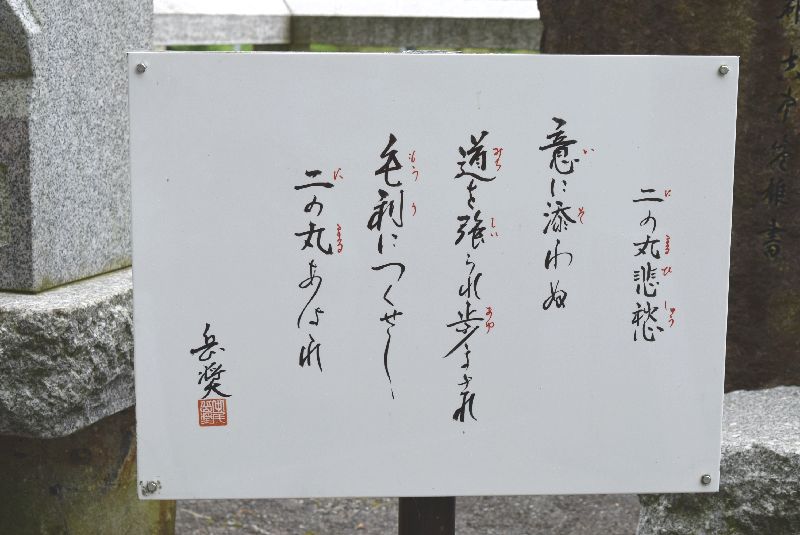 二の丸悲愁
意に添わぬ
道を強られ歩まされ
毛利につくせし、
二の丸あはれ
岳奨